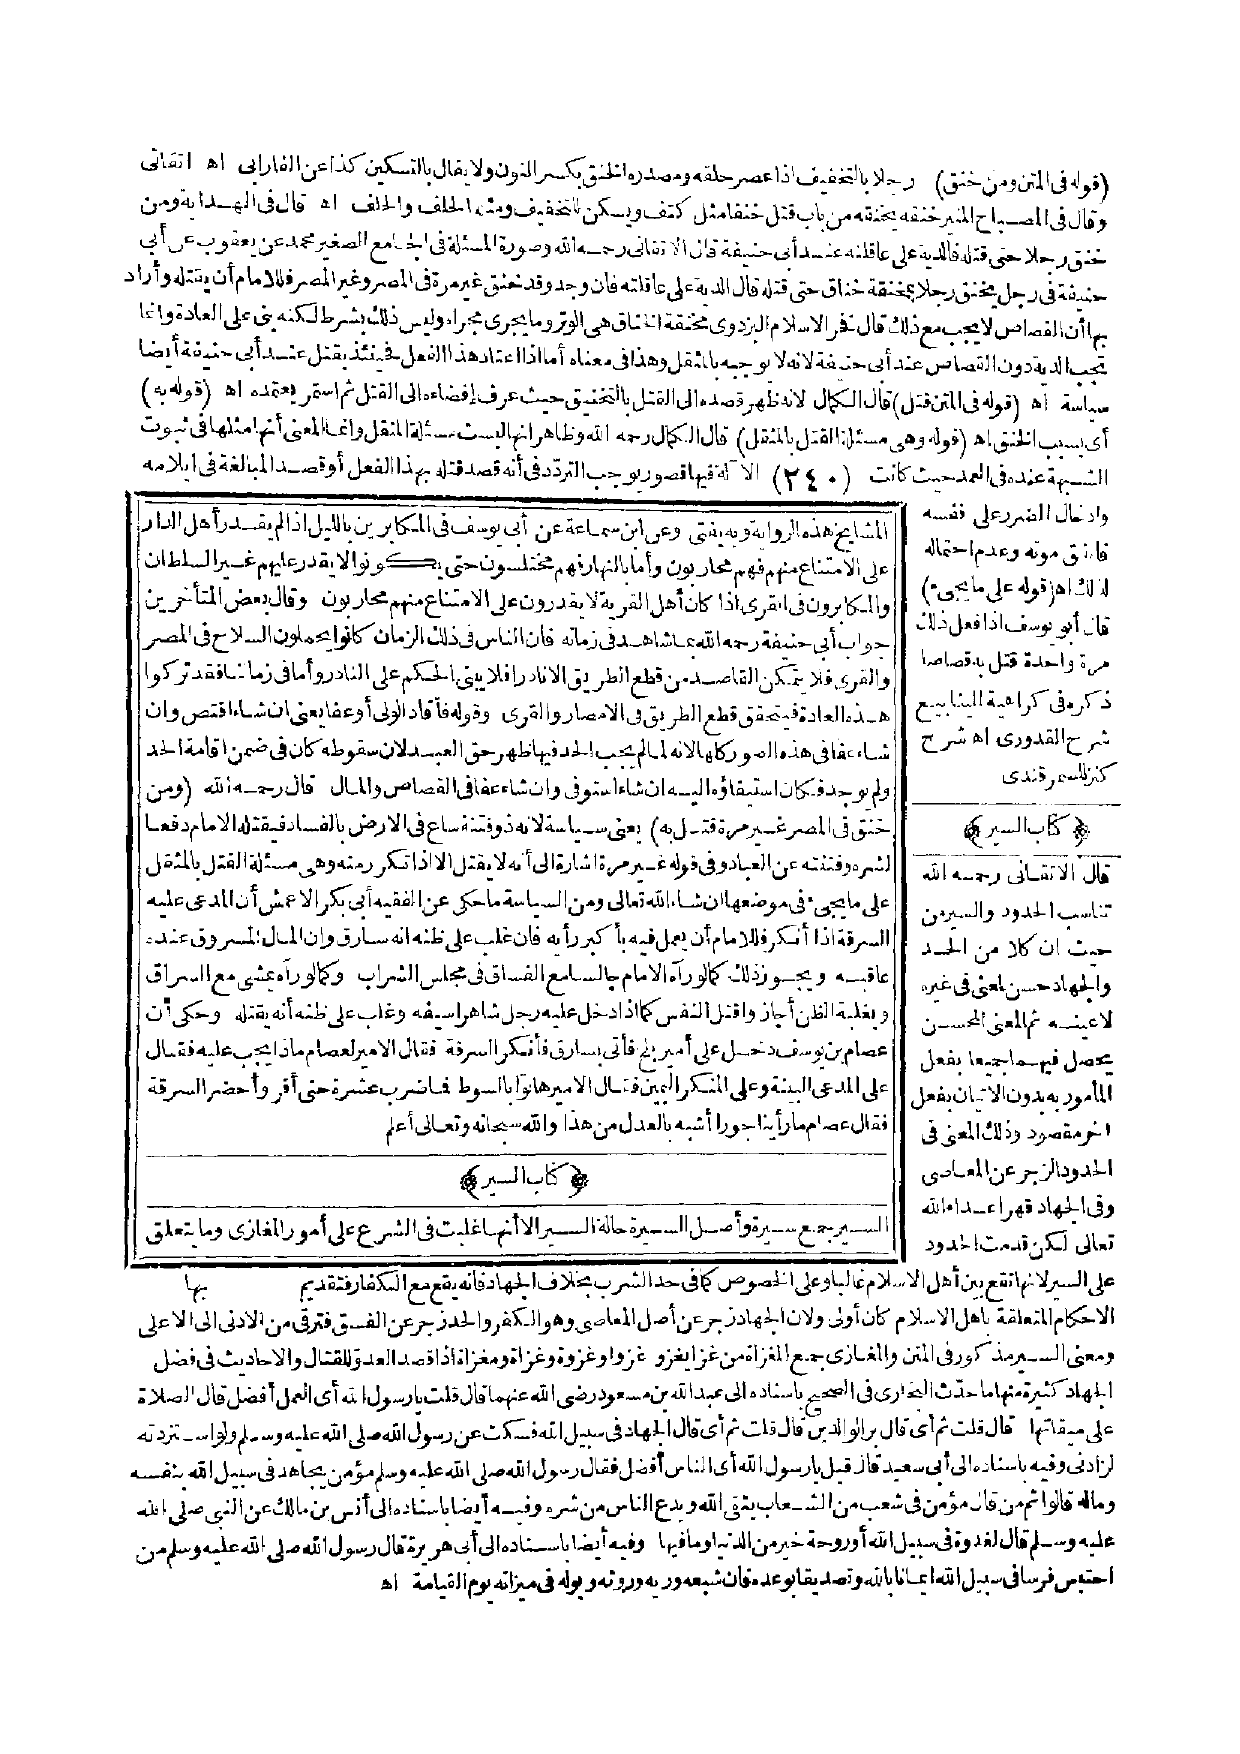 (قوله فى المتن ومن خنق) رجلا بالتخفيف اذا عصر حلقه ومصدره الخنق بكسر النون ولا يقال بالتسكين كذا عن الفارابى اه اتقانى
وقال فى المصباح المنير خنقه يخنقه من باب قتل خنقا مثل كتف ويسكن للتخفيف ومثله الحلف والحلف اه قال فى الهداية ومن
خنق رجلا حتى قتله فالدية على عاقلته عند أبى حنيفة قال الاتقانى رحمه الله وصورة المسئلة فى الجامع الصغير محمد عن يعقوب عن أبى
حنيفة فى رجل يخنق رجلا بمخنقة خناق حتى قتله قال الدية على عاقلته فان وجد وقد خنق غير مرة فى المصر وغير المصر فللامام أن يقتله وأراد
بها أن القصاص لا يجب مع ذلك قال فخر الاسلام البزدوى مخنقة الخناق هى الوتر وما يجرى مجراه وليس ذلك بشرط لكنه بنى على العادة وانما
تجب الدية دون القصاص عند أبى حنيفة لانه لا يوجبه بالمثقل وهذا فى معناه أما اذا اعتاد هذا الفعل فحينئذ يقتل عند أبى حنيفة أيضا
سياسة اه (قوله فى المتن قتل) قال الكمال لانه ظهر قصده الى القتل بالتخنيق حيث عرف إفضاءه الى القتل ثم استمر يعتمده اه (قوله به)
أى بسبب الخنق اه (قوله وهى مسئلة القتل بالمثقل) قال الكمال رحمه الله وظاهر انها ليست مسئلة المثقل وانما المعنى أنها مثلها فى ثبوت
الشبهة عنده فى العمد حيث كانت (٢٤٠) الآلة فيها قصور يوجب التردد فى أنه قصد قتله بهذا الفعل أو قصد المبالغة فى ايلامه
وادخال الضرر على نفسه
فاتفق موته وعدم احتماله
لذلك اه (قوله على ما يجىء)
قال أبو يوسف اذا فعل ذلك
مرة واحدة قتل به قصاصا
ذكره فى كراهية الينابيع
شرح القدورى اه شرح
كنز للسمرقندى
﴿كتاب السير﴾
قال الاتقانى رحمه الله
تناسب الحدود والسير من
حيث ان كلا من الحد
والجهاد حسن لمعنى فى غيره
لا عينه ثم المعنى المحسن
يحصل فيهما جميعا بفعل
المأمور به بدون الاتيان بفعل
آخر مقصود وذلك المعنى فى
الحدود الزجر عن المعاصى
وفى الجهاد قهر أعداء الله
تعالى لكن قدمت الحدود
المشايخ هذه الرواية وبه يفتى وعن ابن سماعة عن أبى يوسف فى المكابرين بالليل اذا لم يقدر أهل الدار
على الامتناع منهم فهم محاربون وأما بالنهار فهم مختلسون حتى يكونوا لا يقدر عليهم غير السلطان
والمكابرون فى القرى اذا كان أهل القرية لا يقدرون على الامتناع منهم محاربون وقال بعض المتأخرين
جواب أبى حنيفة رحمه الله بما شاهد فى زمانه فان الناس فى ذلك الزمان كانوا يحملون السلاح فى المصر
والقرى فلا يتمكن القاصد من قطع الطريق الا نادرا فلا يبنى الحكم على النادر وأما فى زماننا فقد تركوا
هذه العادة فيتحقق قطع الطريق فى الامصار والقرى وقوله فأقاد الولى أو عفا يعنى ان شاء اقتص وان
شاء عفا فى هذه الصور كلها لانه لما لم يجب الحد فيها ظهر حق العبد لان سقوطه كان فى ضمن اقامة الحد
ولم يوجد فكان استيفاؤه اليه ان شاء استوفى وان شاء عفا فى القصاص والمال قال رحمه الله (ومن
خنق فى المصر غير مرة قتل به) يعنى سياسة لانه ذو فتنة ساع فى الارض بالفساد فيقتله الامام دفعا
لشره وفتنته عن العباد وفى قوله غير مرة اشارة الى أنه لا يقتل الا اذا تكرر منه وهى مسئلة القتل بالمثقل
على ما يجىء فى موضعها ان شاء الله تعالى ومن السياسة ما حكى عن الفقيه أبى بكر الاعمش أن المدعى عليه
السرقة اذا أنكر فللامام أن يعمل فيه بأكبر رأيه فان غلب على ظنه انه سارق وان المال المسروق عنده
عاقبه ويجوز ذلك كما لو رآه الامام جالسا مع الفساق فى مجلس الشراب وكما لو رآه يمشى مع السراق
وبغلبة الظن أجازوا قتل النفس كما اذا دخل عليه رجل شاهرا سيفه وغلب على ظنه أنه يقتله وحكى أن
عصام بن يوسف دخل على أمير بلخ فأتى بسارق فأنكر السرقة فقال الامير لعصام ماذا يجب عليه فقال
على المدعى البينة وعلى المنكر اليمين فقال الامير هاتوا بالسوط فما ضرب عشرة حتى أقر وأحضر السرقة
فقال عصام ما رأينا جورا أشبه بالعدل من هذا والله سبحانه وتعالى أعلم
﴿كتاب السير﴾
السير جمع سيرة وأصل السيرة حالة السير الا أنها غلبت فى الشرع على أمور المغازى وما يتعلق
بها
على السير لانها تقع بين أهل الاسلام غالبا وعلى الخصوص كما فى حد الشرب بخلاف الجهاد فانه يقع مع الكفار فتقديم
الاحكام المتعلقة باهل الاسلام كان أولى ولان الجهاد زجر عن أصل المعاصى وهو الكفر والحد زجر عن الفسق فترقى من الادنى الى الاعلى
ومعنى السير مذكور فى المتن والمغازى جمع المغزاة من غزا يغزو غزوا وغزوة وغزاة ومغزاة اذا قصد العدو للقتال والاحاديث فى فضل
الجهاد كثيرة منها ما حدث البخارى فى الصحيح باسناده الى عبد الله بن مسعود رضى الله عنهما قال قلت يا رسول الله أى العمل أفضل قال الصلاة
على ميقاتها قال قلت ثم أى قال بر الوالدين قال قلت ثم أى قال الجهاد فى سبيل الله فسكت عن رسول الله صلى الله عليه وسلم ولو استزدته
لزادنى وفيه باسناده الى أبى سعيد قال قيل يا رسول الله أى الناس أفضل فقال رسول الله صلى الله عليه وسلم مؤمن يجاهد فى سبيل الله بنفسه
وماله قالوا ثم من قال مؤمن فى شعب من الشعاب يتقى الله ويدع الناس من شره وفيه أيضا باسناده الى أنس بن مالك عن النبى صلى الله
عليه وسلم قال لغدوة فى سبيل الله أو روحة خير من الدنيا وما فيها وفيه أيضا باسناده الى أبى هريرة قال رسول الله صلى الله عليه وسلم من
احتبس فرسا فى سبيل الله ايمانا بالله وتصديقا بوعده فان شبعه وريه وروثه وبوله فى ميزانه يوم القيامة اه